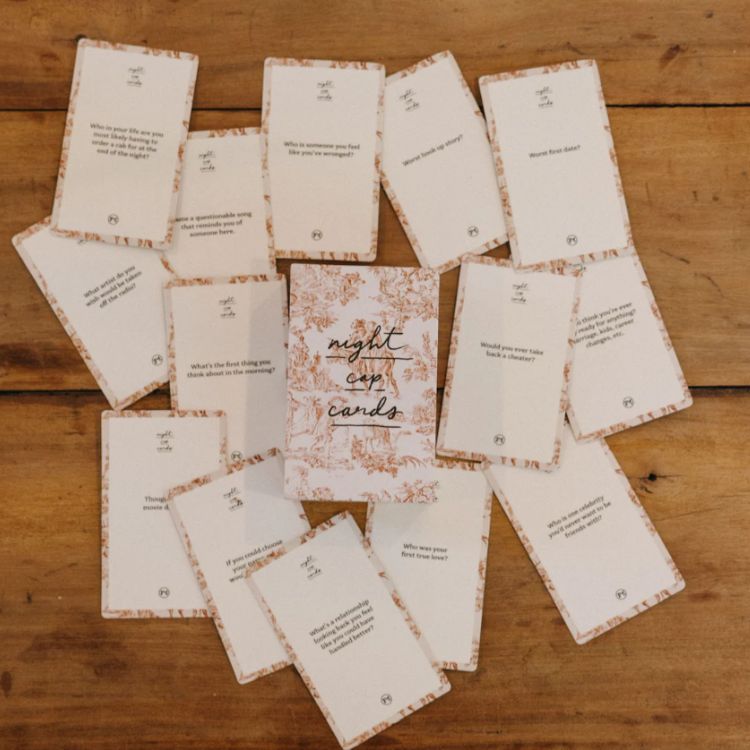 night
cap
cards
Who in your life are you
most likely having to
order a cab for at the
end of the night?
night
cap
cards
a questionable song
that reminds you of
someone here.
night
cap
cards
Who is someone you feel
like you've wronged?
night
cap
cards
Worst hook up story?
night
cap
cards
Worst first date?
What artist do you
wish would be taken
off the radio?
night
cap
cards
What's the first thing you
think about in the morning?
night
cap
cards
night
cap
cards
Would you ever take
back a cheater?
think you're ever
ready for anything?
kids, career
changes, etc.
night
cap
cards
movie
night
cap
cards
If you could choose
your
night
cap
cards
What's a relationship
looking back you feel
like you could have
handled better?
Who was your
first true love?
Who is one celebrity
you'll never want to be
friends with?